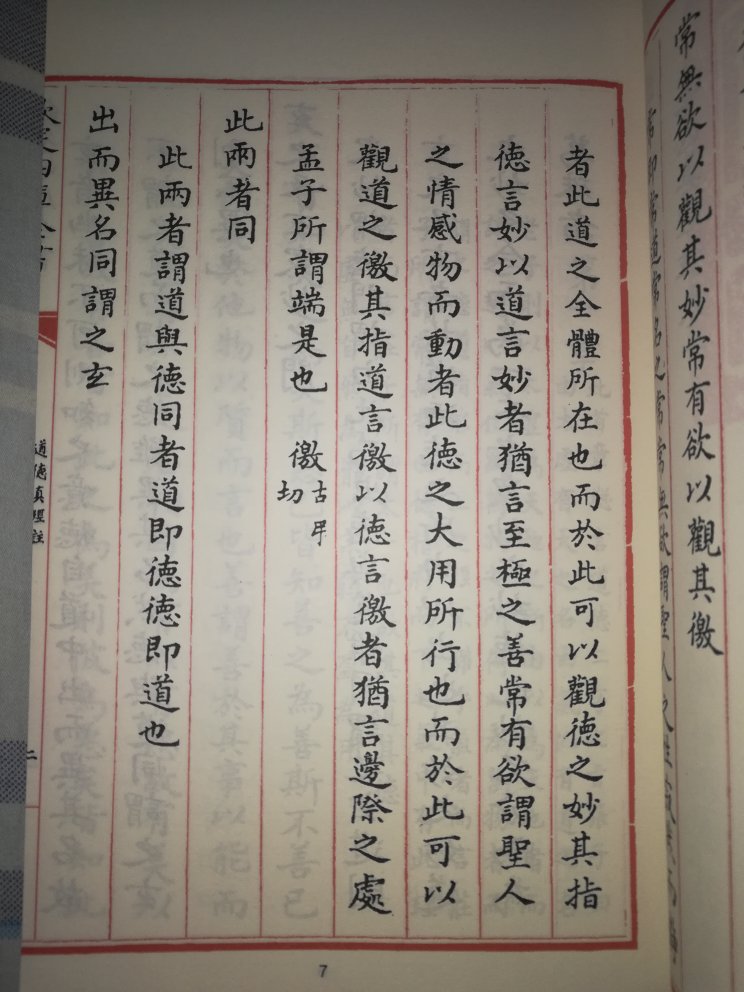 常無欲以觀其妙常有欲以觀其徼
者此道之全體所在也而於此可以觀德之妙其指
德言妙以道言妙者猶言至極之善常有欲謂聖人
之情感物而動者此德之大用所行也而於此可以
觀道之徼其指道言徼以德言徼者猶言邊際之處
孟子所謂端是也 徼古弔切
此兩者同
此兩者謂道與德同者道即德德即道也
出而異名同謂之玄
道德真經註
二
7